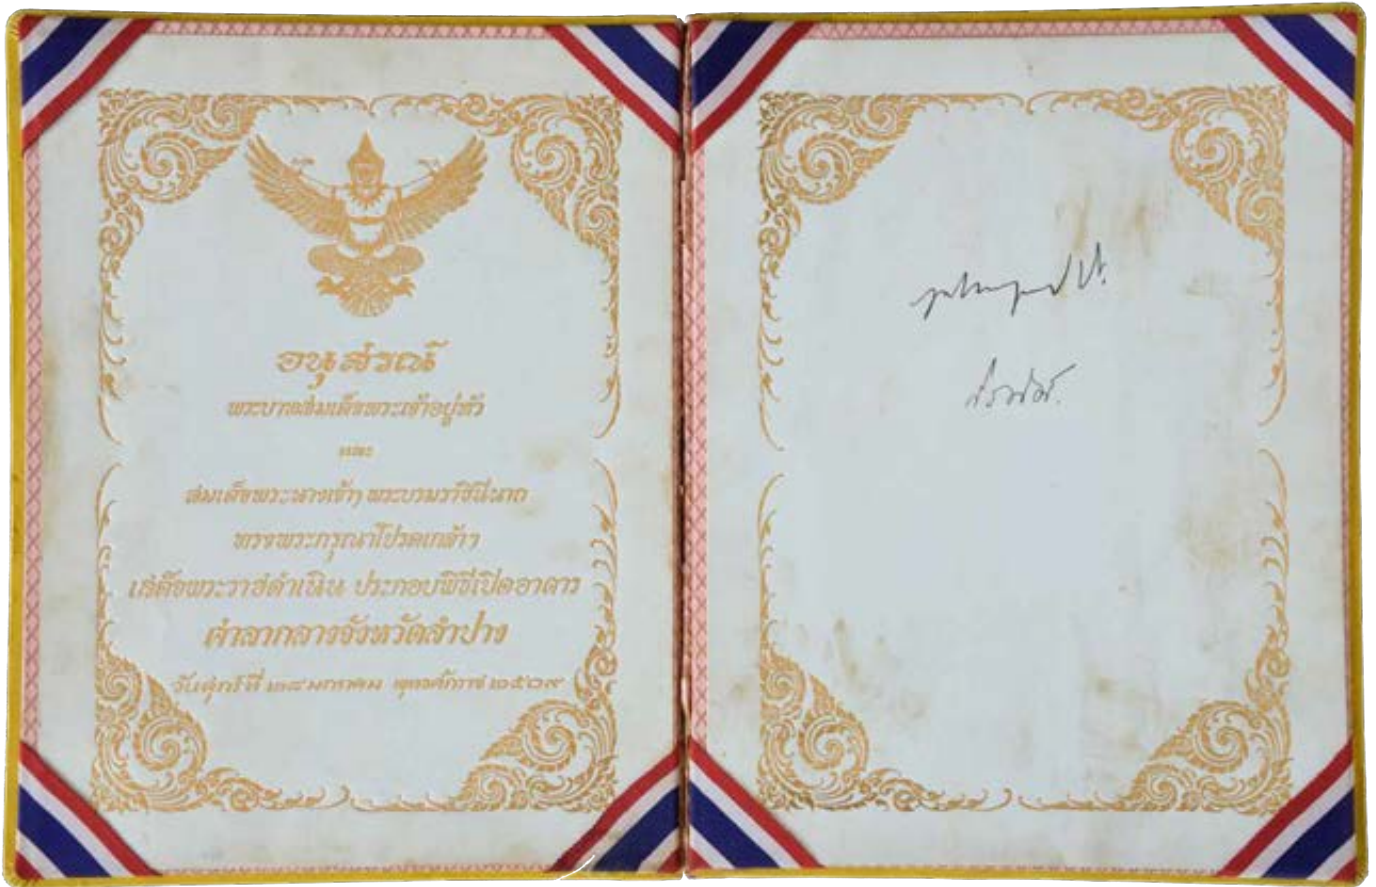 อนุสรณ์
พระบาทสมเด็จพระเจ้าอยู่หัว
และ
สมเด็จพระนางเจ้าฯ พระบรมราชินีนาถ
ทรงพระกรุณาโปรดเกล้าฯ
เสด็จพระราชดำเนิน ประกอบพิธีเปิดอาคาร
ศาลากลางจังหวัดลำปาง
วันศุกร์ที่ ๒๘ มกราคม พุทธศักราช ๒๕๐๙